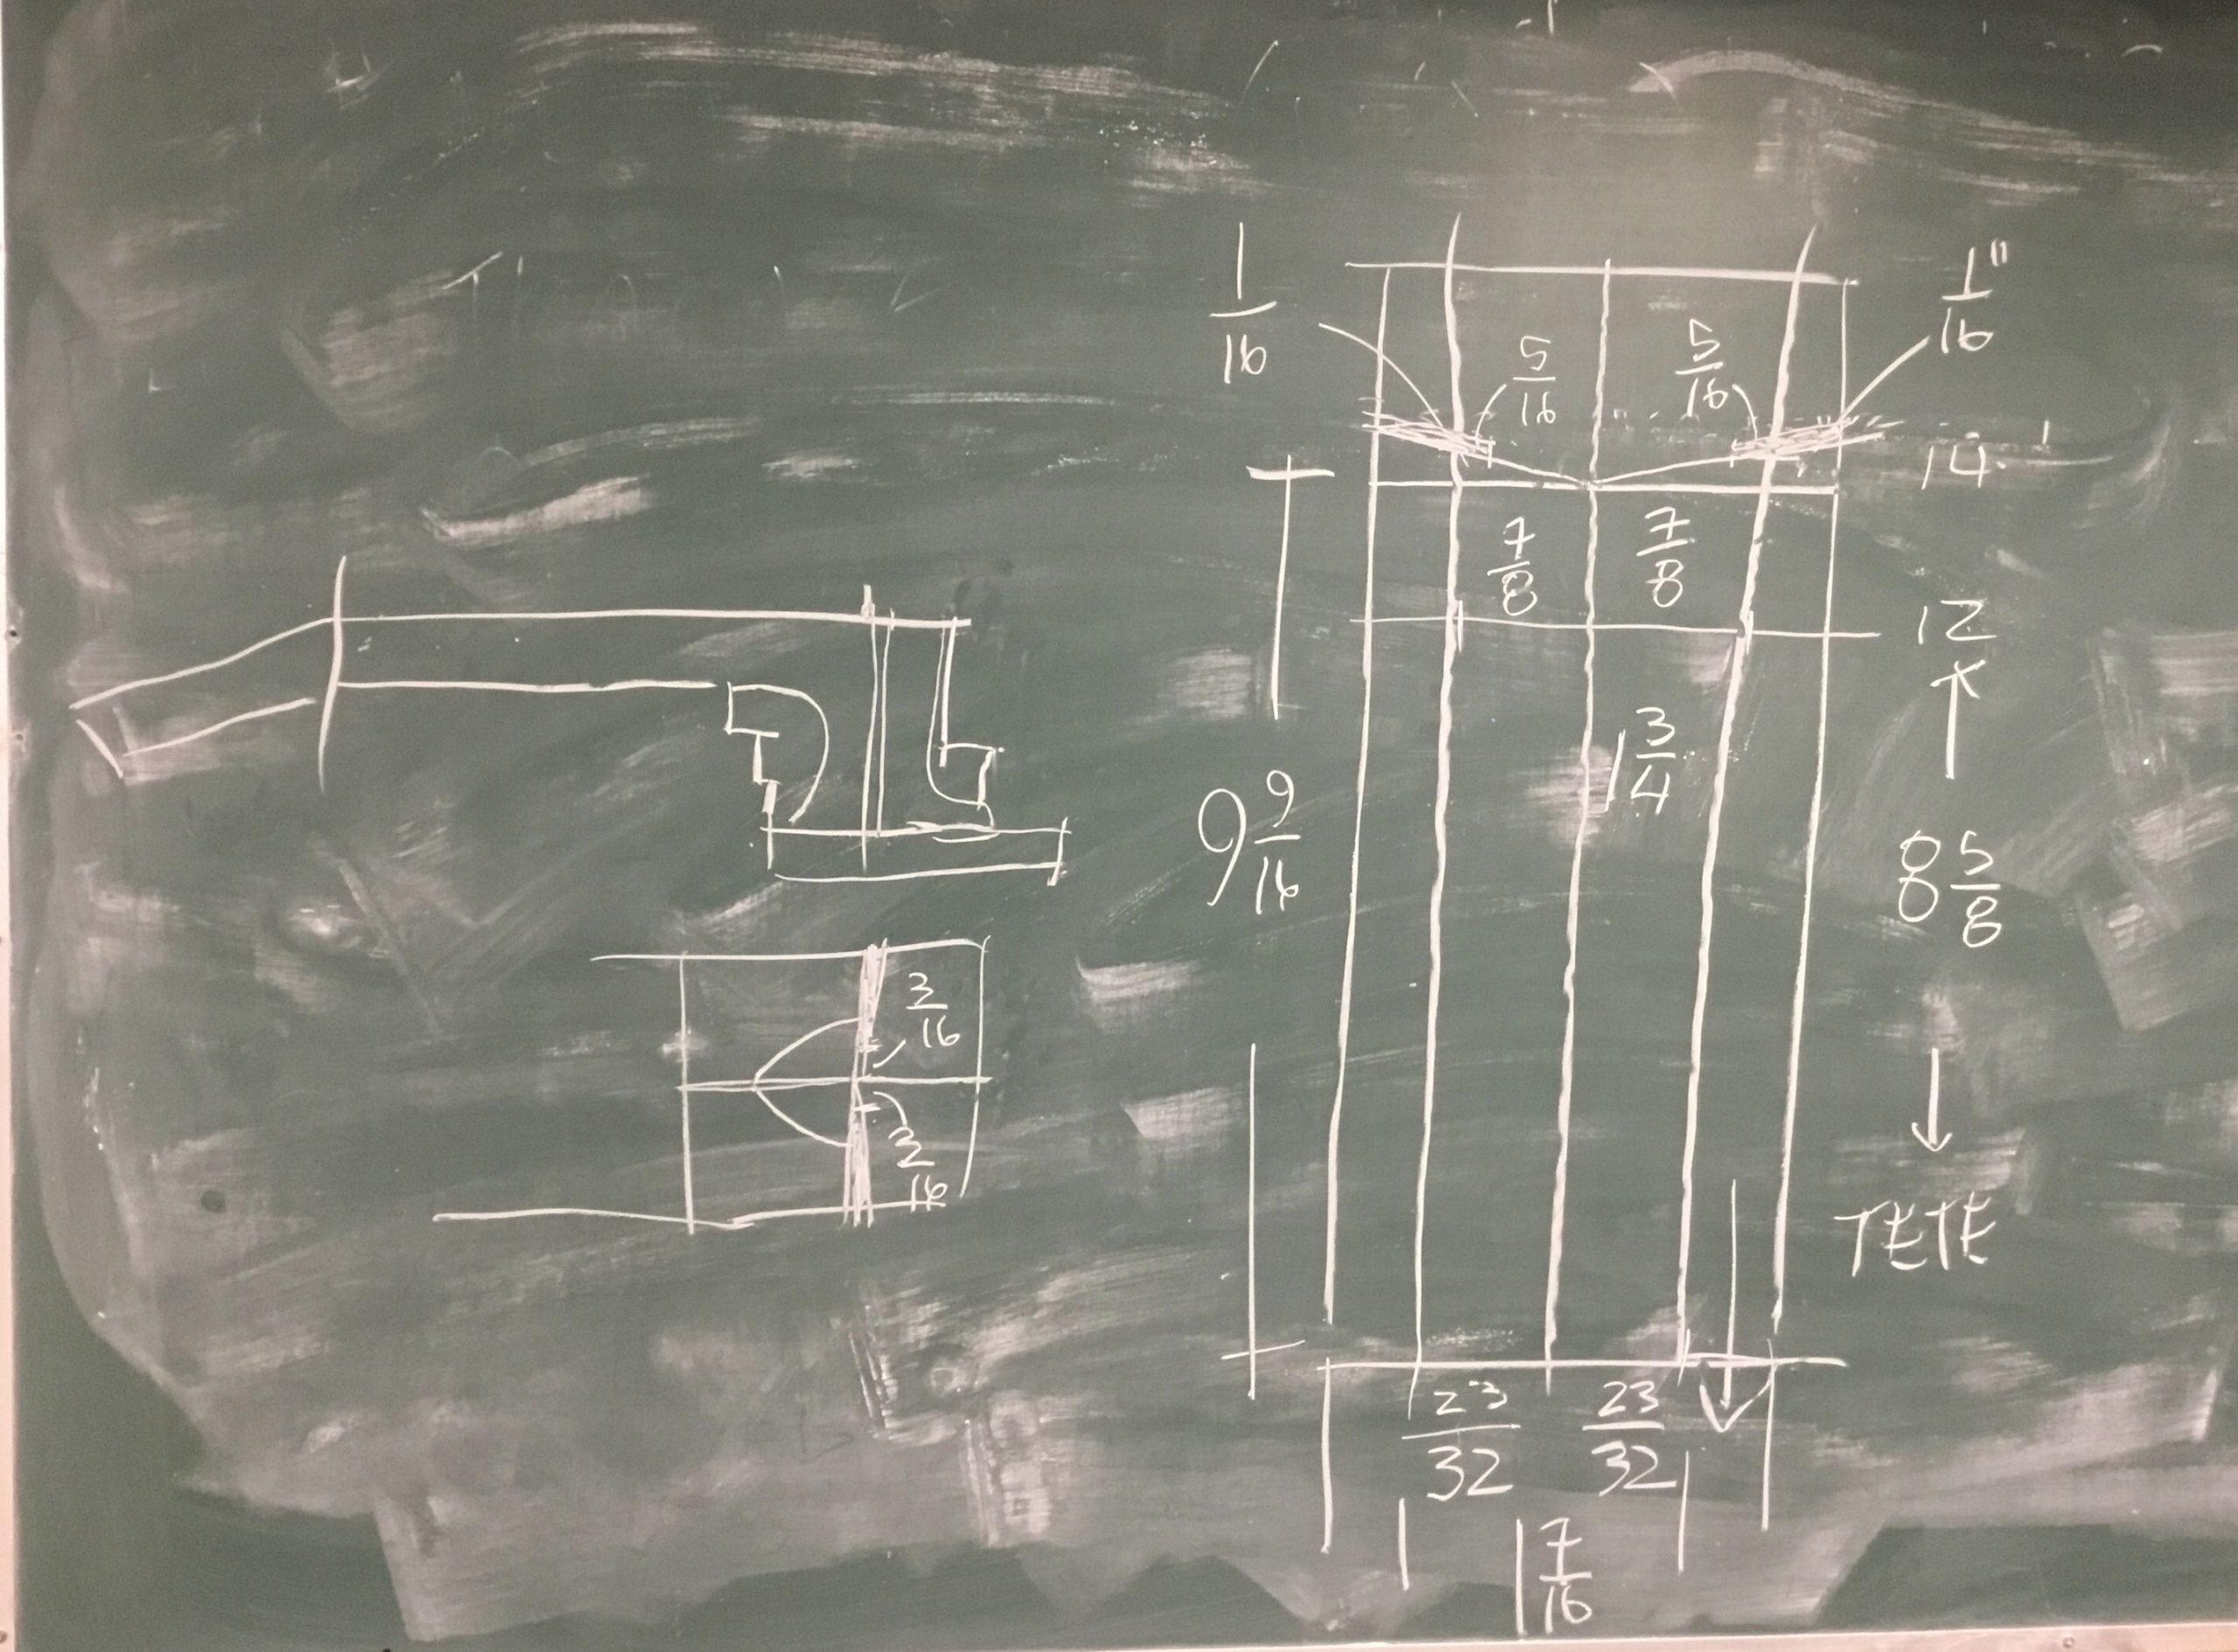 1/16
1"/16
5/16 5/16
14
7/8 7/8
12
1 3/4
9 9/16
8 5/8
3/16
3/16
TETE
23/32 23/32
1 7/16